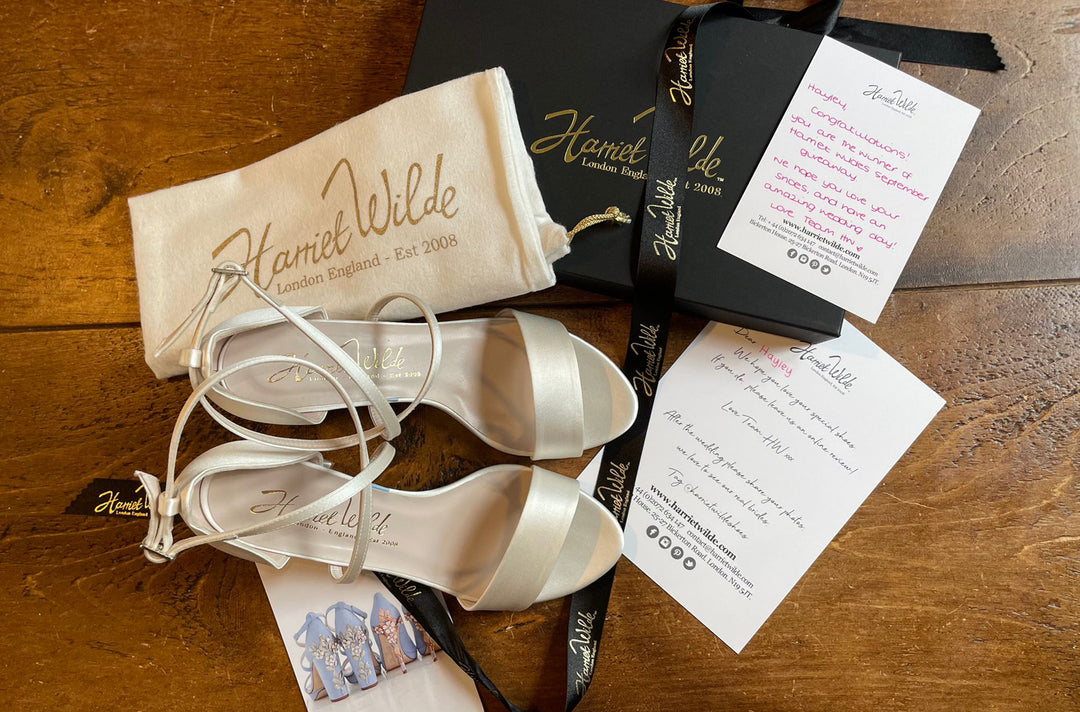 Harriet Wilde
London England - Est 2008
Harriet Wilde™
London England
Est 2008
Harriet Wilde
London England
Harriet Wilde
London England
Harriet Wilde
Hayley,
Congratulations!
you are the winner of
Harriet Wildes September
giveaway.
We hope you love your
shoes, and have an
amazing wedding day!
Love, Team HW
www.harrietwilde.com
Tel: +44 (0)2072 634 147 contact@harrietwilde.com
Bickerton House, 25-27 Bickerton Road, London, N19 5JT.
Harriet Wilde
Dear Hayley
We hope you love your special shoes
If you do, please leave us an online review!
Love Team HW xxx
After the wedding please share your photos
we love to see our real brides
Tag @harrietwildeshoes
www.harrietwilde.com
44 (0)2072 634 147 contact@harrietwilde.com
House, 25-27 Bickerton Road, London, N19 5JT.
Harriet Wilde
London - England - Est 2008
Harriet Wilde
London - England Est 2008
Harriet Wilde
London England
Harriet Wilde
Harriet Wilde
Harriet Wilde